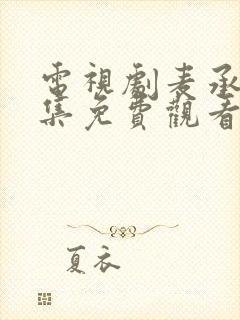 電視劇麦承
集免費觀看
夏衣